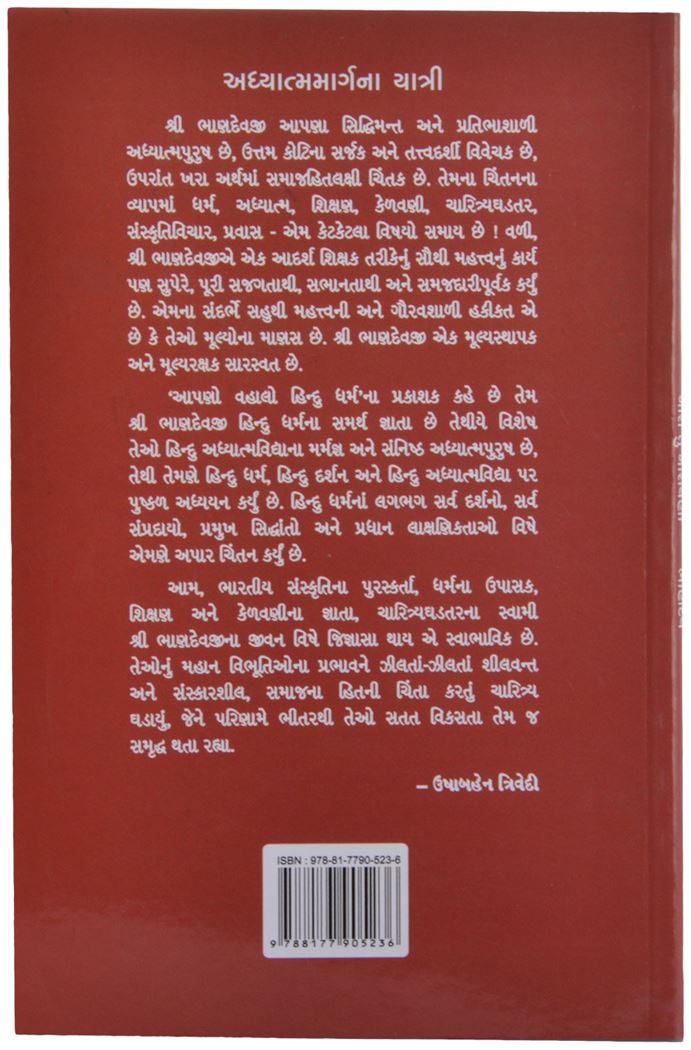 અધ્યાત્મમાર્ગના યાત્રી
શ્રી ભાણદેવજી આપણા સિદ્ધિમન્ત અને પ્રતિભાશાળી
અધ્યાત્મપુરુષ છે, ઉત્તમ કોટિના સર્જક અને તત્ત્વદર્શી વિવેચક છે,
ઉપરાંત ખરા અર્થમાં સમાજહિતલક્ષી ચિંતક છે. તેમના ચિંતનના
વ્યાપમાં ધર્મ, અધ્યાત્મ, શિક્ષણ, કેળવણી, ચારિત્ર્યઘડતર,
સંસ્કૃતિવિચાર, પ્રવાસ - એમ કેટકેટલા વિષયો સમાય છે ! વળી,
શ્રી ભાણદેવજીએ એક આદર્શ શિક્ષક તરીકેનું સૌથી મહત્ત્વનું કાર્ય
પણ સુપેરે, પૂરી સજગતાથી, સભાનતાથી અને સમજદારીપૂર્વક કર્યું
છે. એમના સંદર્ભે સહુથી મહત્ત્વની અને ગૌરવશાળી હકીકત એ
છે કે તેઓ મૂલ્યોના માણસ છે. શ્રી ભાણદેવજી એક મૂલ્યસ્થાપક
અને મૂલ્યરક્ષક સારસ્વત છે.
'આપણો વહાલો હિન્દુ ધર્મ'ના પ્રકાશક કહે છે તેમ
શ્રી ભાણદેવજી હિન્દુ ધર્મના સમર્થ જ્ઞાતા છે તેથીયે વિશેષ
તેઓ હિન્દુ અધ્યાત્મવિદ્યાના મર્મજ્ઞ અને સંનિષ્ઠ અધ્યાત્મપુરુષ છે,
તેથી તેમણે હિન્દુ ધર્મ, હિન્દુ દર્શન અને હિન્દુ અધ્યાત્મવિદ્યા પર
પુષ્કળ અધ્યયન કર્યું છે. હિન્દુ ધર્મનાં લગભગ સર્વ દર્શનો, સર્વ
સંપ્રદાયો, પ્રમુખ સિદ્ધાંતો અને પ્રધાન લાક્ષણિકતાઓ વિષે
એમણે અપાર ચિંતન કર્યું છે.
આમ, ભારતીય સંસ્કૃતિના પુરસ્કર્તા, ધર્મના ઉપાસક,
શિક્ષણ અને કેળવણીના જ્ઞાતા, ચારિત્ર્યઘડતરના સ્વામી
શ્રી ભાણદેવજીના જીવન વિષે જિજ્ઞાસા થાય એ સ્વાભાવિક છે.
તેઓનું મહાન વિભૂતિઓના પ્રભાવને ઝીલતાં-ઝીલતાં શીલવન્ત
અને સંસ્કારશીલ, સમાજના હિતની ચિંતા કરતું ચારિત્ર્ય
ઘડાયું, જેને પરિણામે ભીતરથી તેઓ સતત વિકસતા તેમ જ
સમૃદ્ધ થતા રહ્યા.
– ઉષાબહેન ત્રિવેદી
ISBN : 978-81-7790-523-6
9 788177 905236